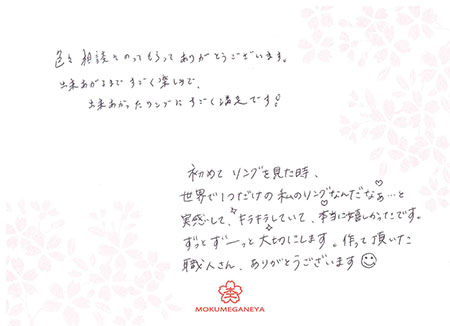 色々相談をのってもらってありがとうございます。
出来あがるまですごく楽しみで、
出来あがったリングにすごく満足です!
初めてリングを見た時、
世界で1つだけの私のリングなんだなぁ…と
実感して、キラキラしていて、本当に嬉しかったです。
ずっとずーっと大切にします。作って頂いた
職人さん、ありがとうございます
MOKUMEGANEYA